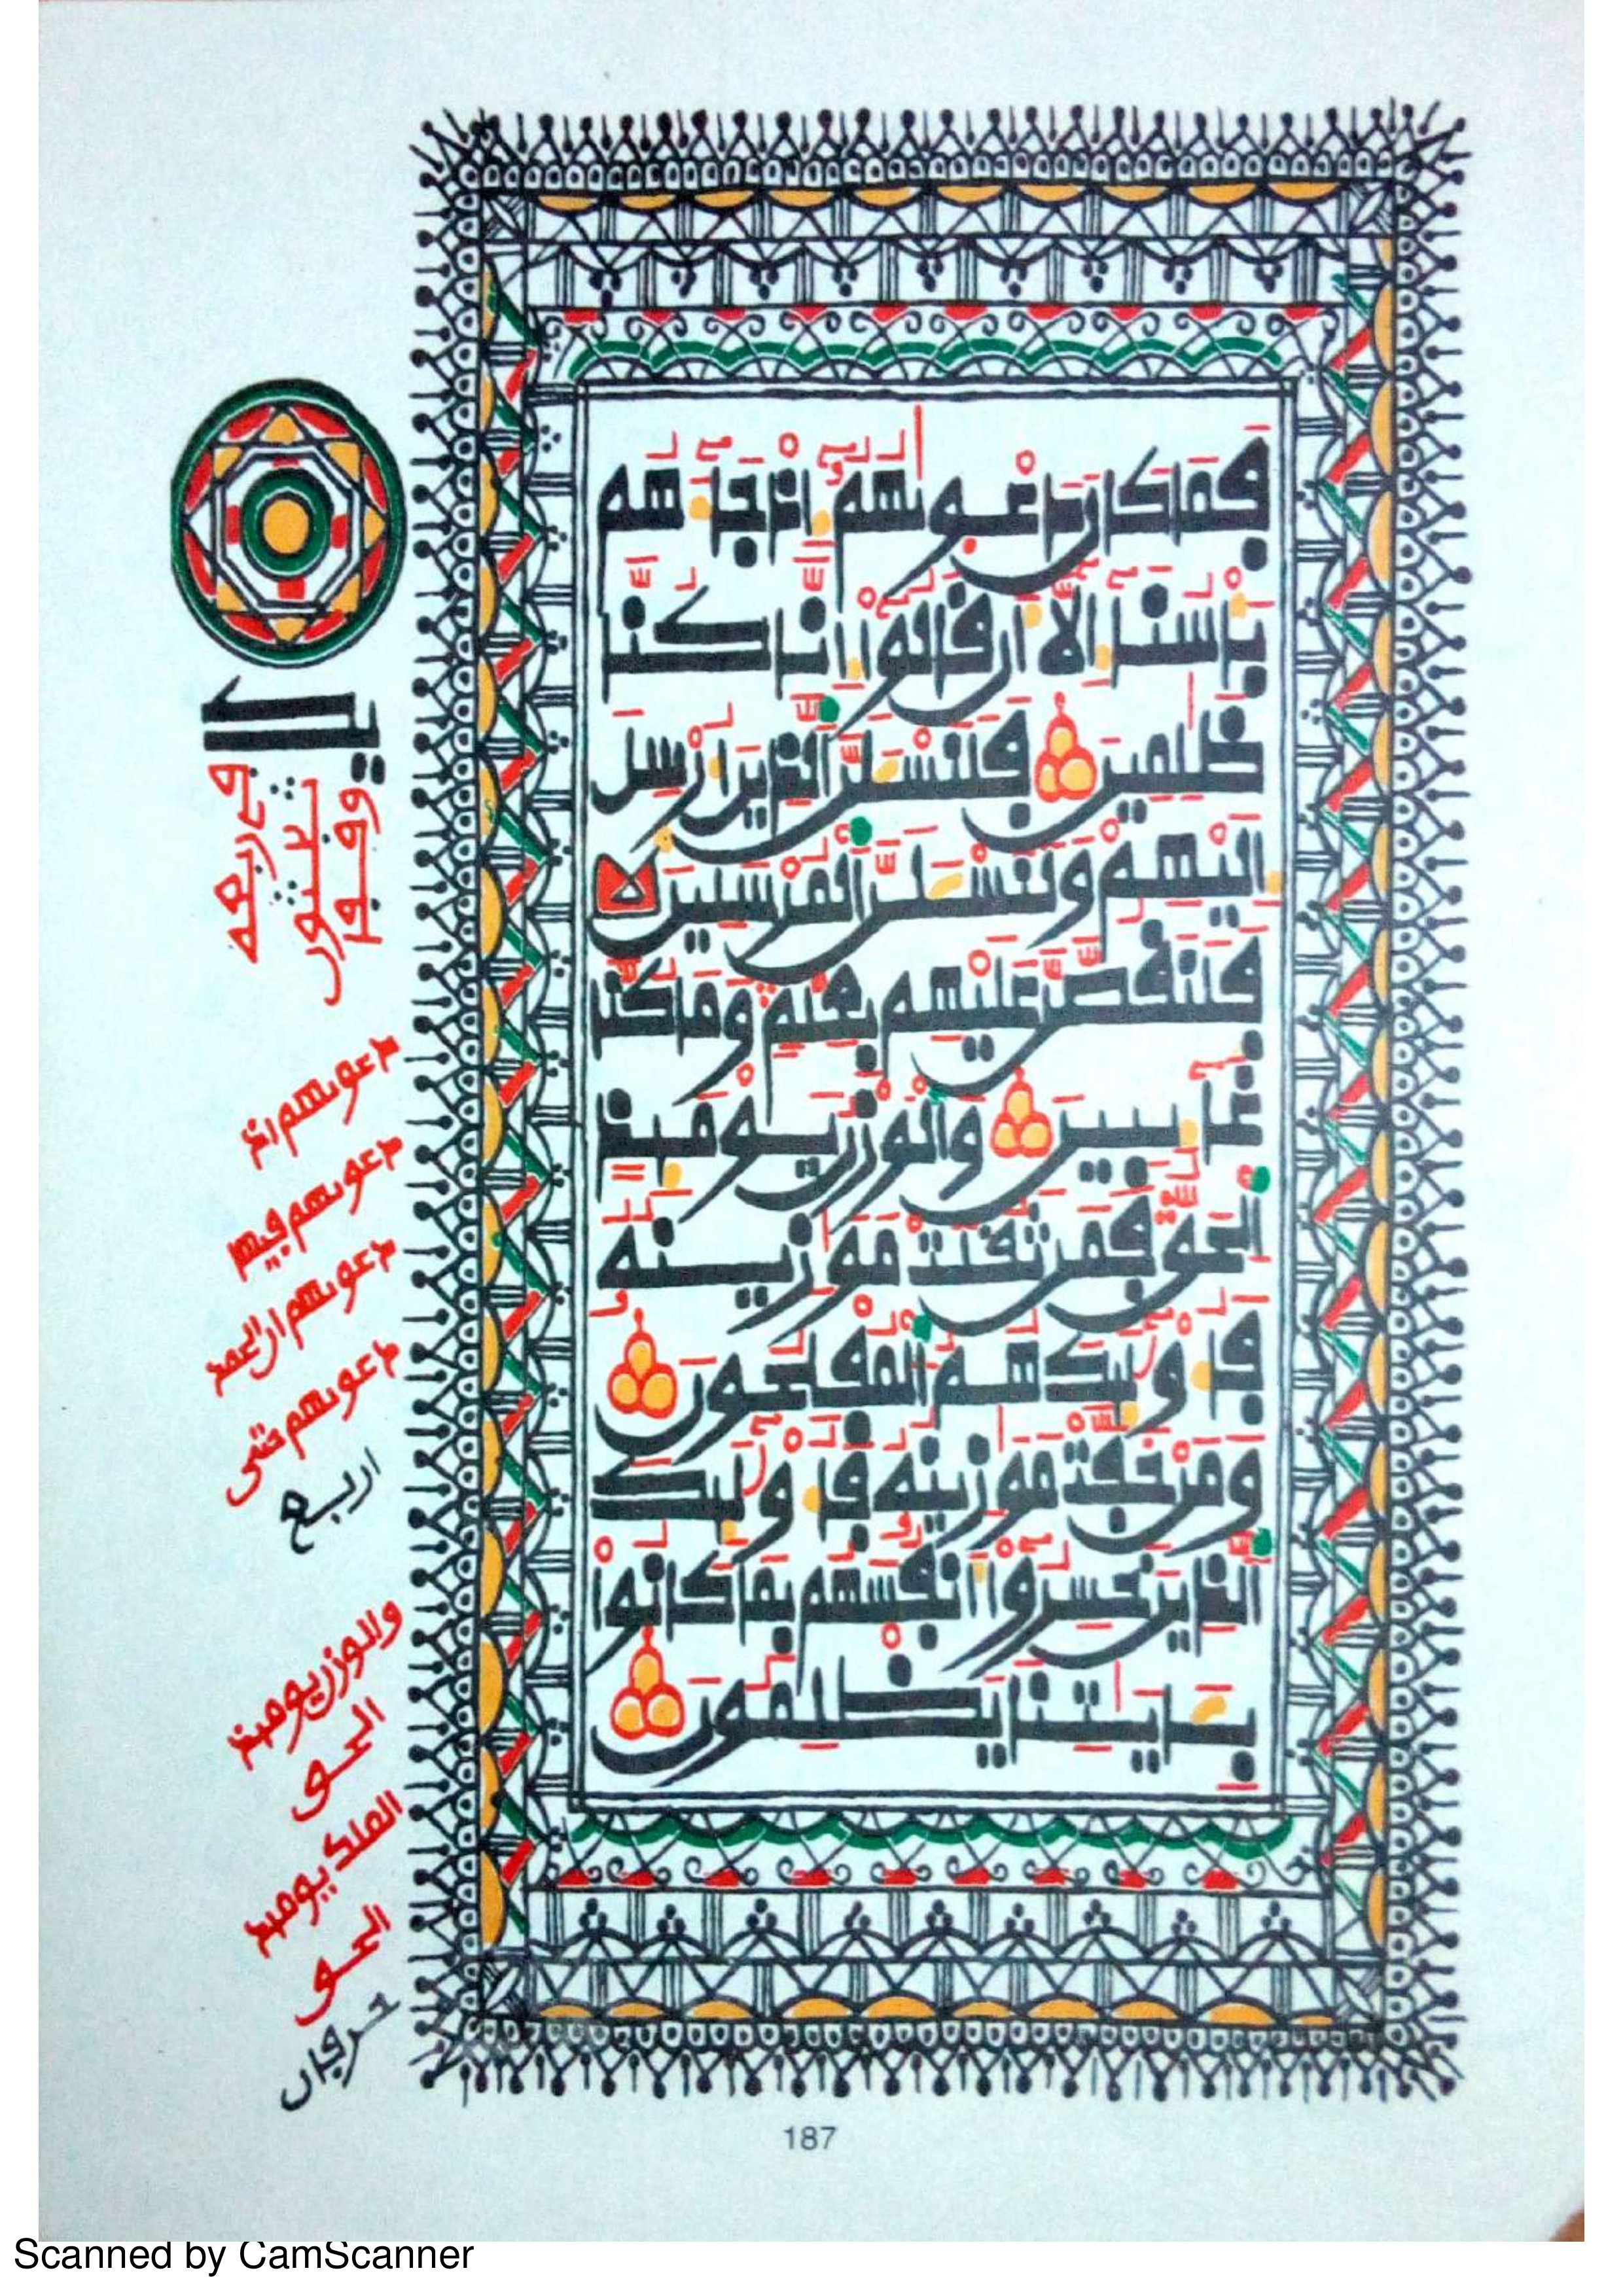 فَمَا كَانَ دَعْوٜيٰهُمُۥٓ إِذْ جَآءَهُم
بَأْسُنَآ إِلَّآ أَن قَالُوٓاْ إِنَّا كُنَّا
ظَٰلِمِينَ فَلَنَسْـَٔلَنَّ ٱلذِينَ أُرْسِلَ
إِلَيْهِمْ وَلَنَسْـَٔلَنَّ ٱلْمُرْسَلِينَ
فَلَنَقُصَّنَّ عَلَيْهِم بِعِلْمٍ وَمَا كُنَّا
غَآئِبِينَ وَالْوَزْنُ يَوْمَئِذٍ
ٱلْحَقُّ فَمَن ثَقُلَتْ مَوَٰزِينُهُۥ
فَأُوْلَٰٓئِكَ هُمُ ٱلْمُفْلِحُونَ
وَمَنْ خَفَّتْ مَوَٰزِينُهُۥ فَأُوْلَٰٓئِكَ
ٱلذِينَ خَسِرُوٓاْ أَنفُسَهُم بِمَا كَانُواْ
بِـَٔايَٰتِنَا يَظْلِمُونَ
دعويهم إذ
دعويهم فيها
دعويهم أن الحمد
دعويهم حتى
اربع
والوزن يومئذ
الحق
الملك يومئذ
الحق
حرفان
187
Scanned by CamScanner